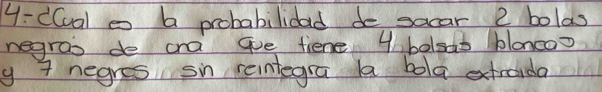 4-¿Cual es la probabilidad de sacar 2 bolas
negras de una que tiene 4 bolsas blancas
y 7 negras sin reintegra la bola extraida